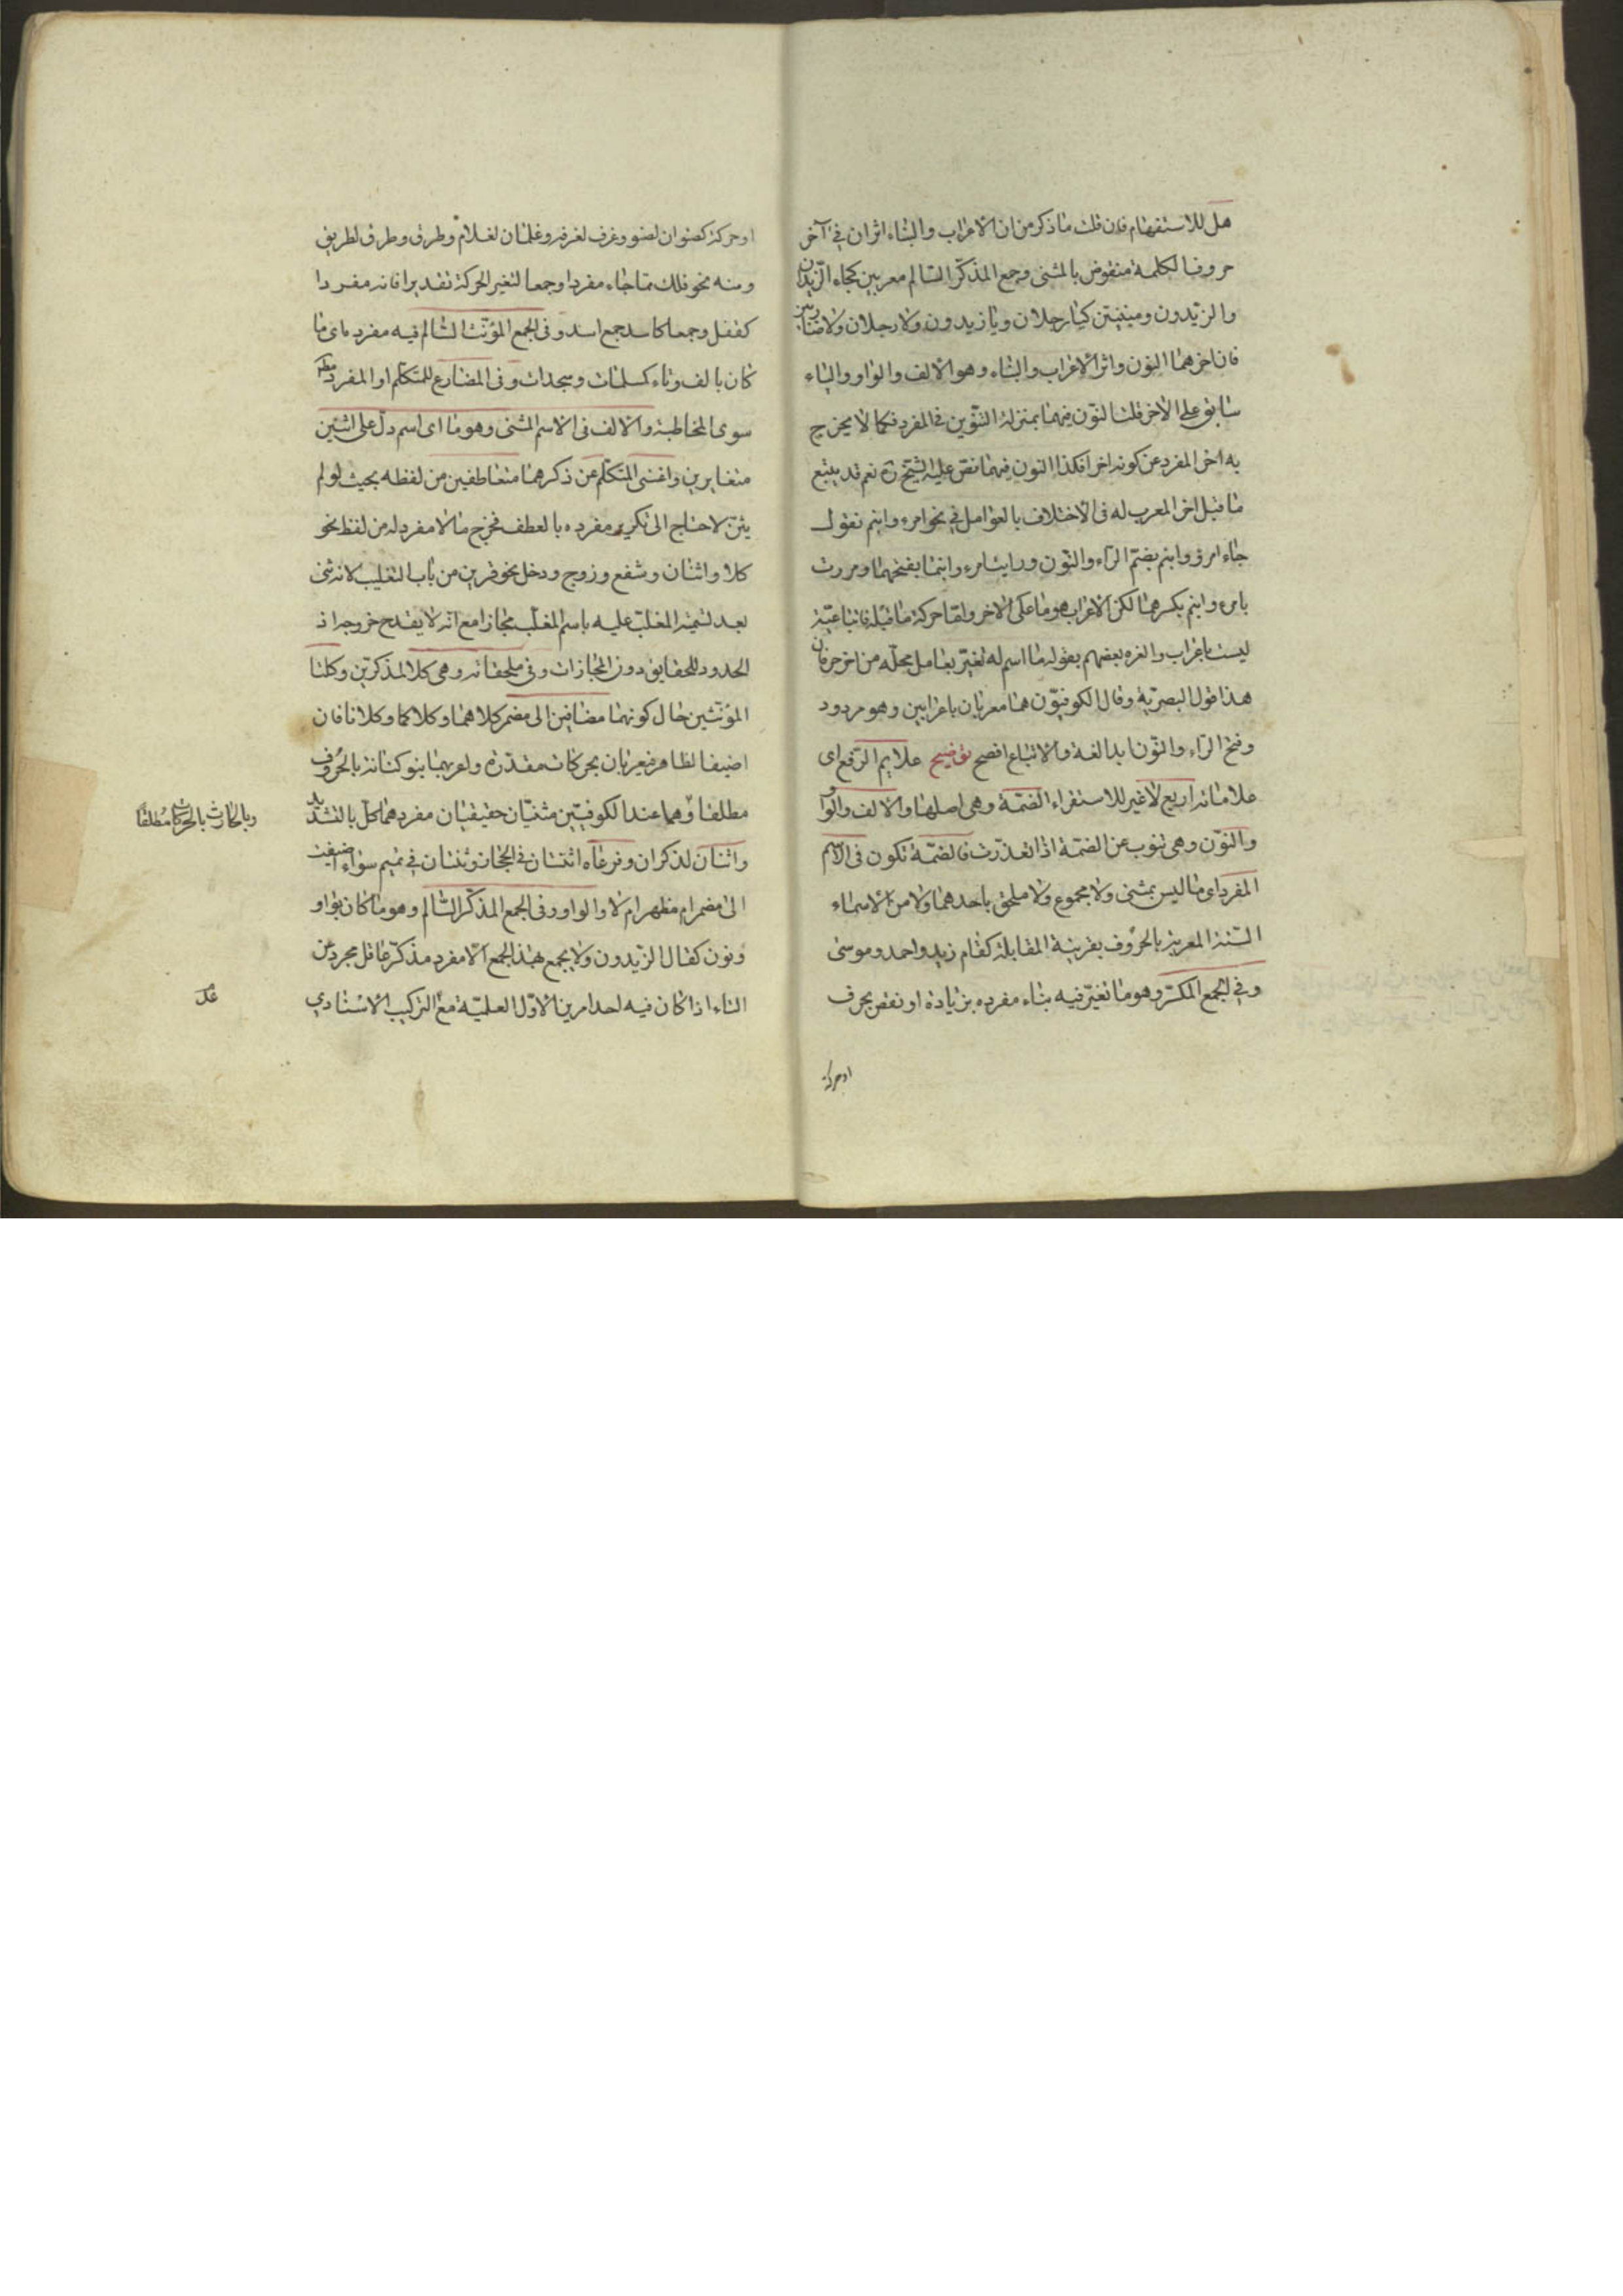 هل للاستفهام فان قلت ما ذكر من ان الاعراب والبناء اثران في آخر
حروف الكلمة منقوض بالمثنى وجمع المذكر السالم معربين كجاء الزيدان
والزيدون ومبنيتين كيا رجلان ويا زيدون ولا رجلان ولا ضاربين
فان اخرهما النون واثر الاعراب والبناء وهو الالف والواو والياء
سابق على الاخر قلت النون فيهما بمنزلة التنوين في المفرد فكما لا يخرج
به اخر المفرد عن كونه اخرا فكذا النون فيهما نص عليه الشيخ ره نعم قد يتبع
ما قبل اخر المعرب له في الاختلاف بالعوامل في نحو امرء وابنم تقول
جاء امرؤ وابنم بضم الراء والنون ورايت امرء وابنما بفتحهما ومررت
بامرء وابنم بكسرهما لكن الاعراب هو ما على الاخر واما حركة ما قبله فاتباعية
ليست باعراب والغزه بعضهم بقوله ما اسم له تغير بعامل محله من اخر حرفان
هذا قول البصرية وقال الكوفيون هما معربان باعرابين وهو مردود
وفتح الراء والنون ابدا لغة والاتباع افصح توضيح علايم الرفع اى
علاماته اربع لا غير للاستقراء الضمة وهى اصلها والالف والواو
والنون وهى تنوب عن الضمة اذا تعذرت فالضمة تكون فى الاسم
المفرد اى ما ليس بمثنى ولا مجموع ولا ملحق باحدهما ولا من الاسماء
الستة المعربة بالحروف بقرينة المقابلة كقام زيد واحمد وموسى
وفي الجمع المكسر وهو ما تغير فيه بناء مفرده بزيادة او نقص بحرف
او حركة
او حركة كصنوان لصنو وغرف لغرفة وغلمان لغلام وطرق وطرق لطريق
ومنه نحو فلك مما جاء مفردا وجمعا لتغير الحركة تقديرا فانه مفردا
كقفل وجمعا كاسد جمع اسد وفى الجمع المؤنث السالم فيه مفرده اى ما
كان بالف وتاء كمسلمات وسجدات وفى المضارع للمتكلم او المفرد مطلقا
سوى المخاطبة والالف فى الاسم المثنى وهو ما اى اسم دل على اثنين
متغايرين واغنى المتكلم عن ذكرهما متعاطفين من لفظه بحيث لو لم
يثن لاحتاج الى تكرير مفرده بالعطف فخرج ما لا مفرد له من لفظ نحو
كلا واثنان وشفع وزوج ودخل نحو قمرين من باب التغليب لانه ثنى
بعد تسمية المغلب عليه باسم المغلب مجازا مع انه لا يقدح خروجه اذ
الحدود للحقايق دون المجازات وفى ملحقاته وهى كلا لمذكرين وكلتا
المؤنثين حال كونهما مضافين الى مضمر كلاهما وكلاكما وكلانا فان
اضيفا لظاهر فيعربان بحركات مقدرة واعربهما بنو كنانة بالحروف
مطلقا وهما عند الكوفيين مثنيان حقيقيان مفردهما كل بالتشديد
واثنان لمذكران وفرعاه اثنتان في الحجاز وثنتان في تميم سواء اضيفت
الى مضمر ام مظهر ام لا والواو وفى الجمع المذكر السالم وهو ما كان بواو
ونون كقال الزيدون ولا يجمع بهذا الجمع الا مفرد مذكر عاقل مجرد عن
التاء اذا كان فيه احد امرين الاول العلمية مع التركيب الاسنادي
وبالحارث بالحركات مطلقا